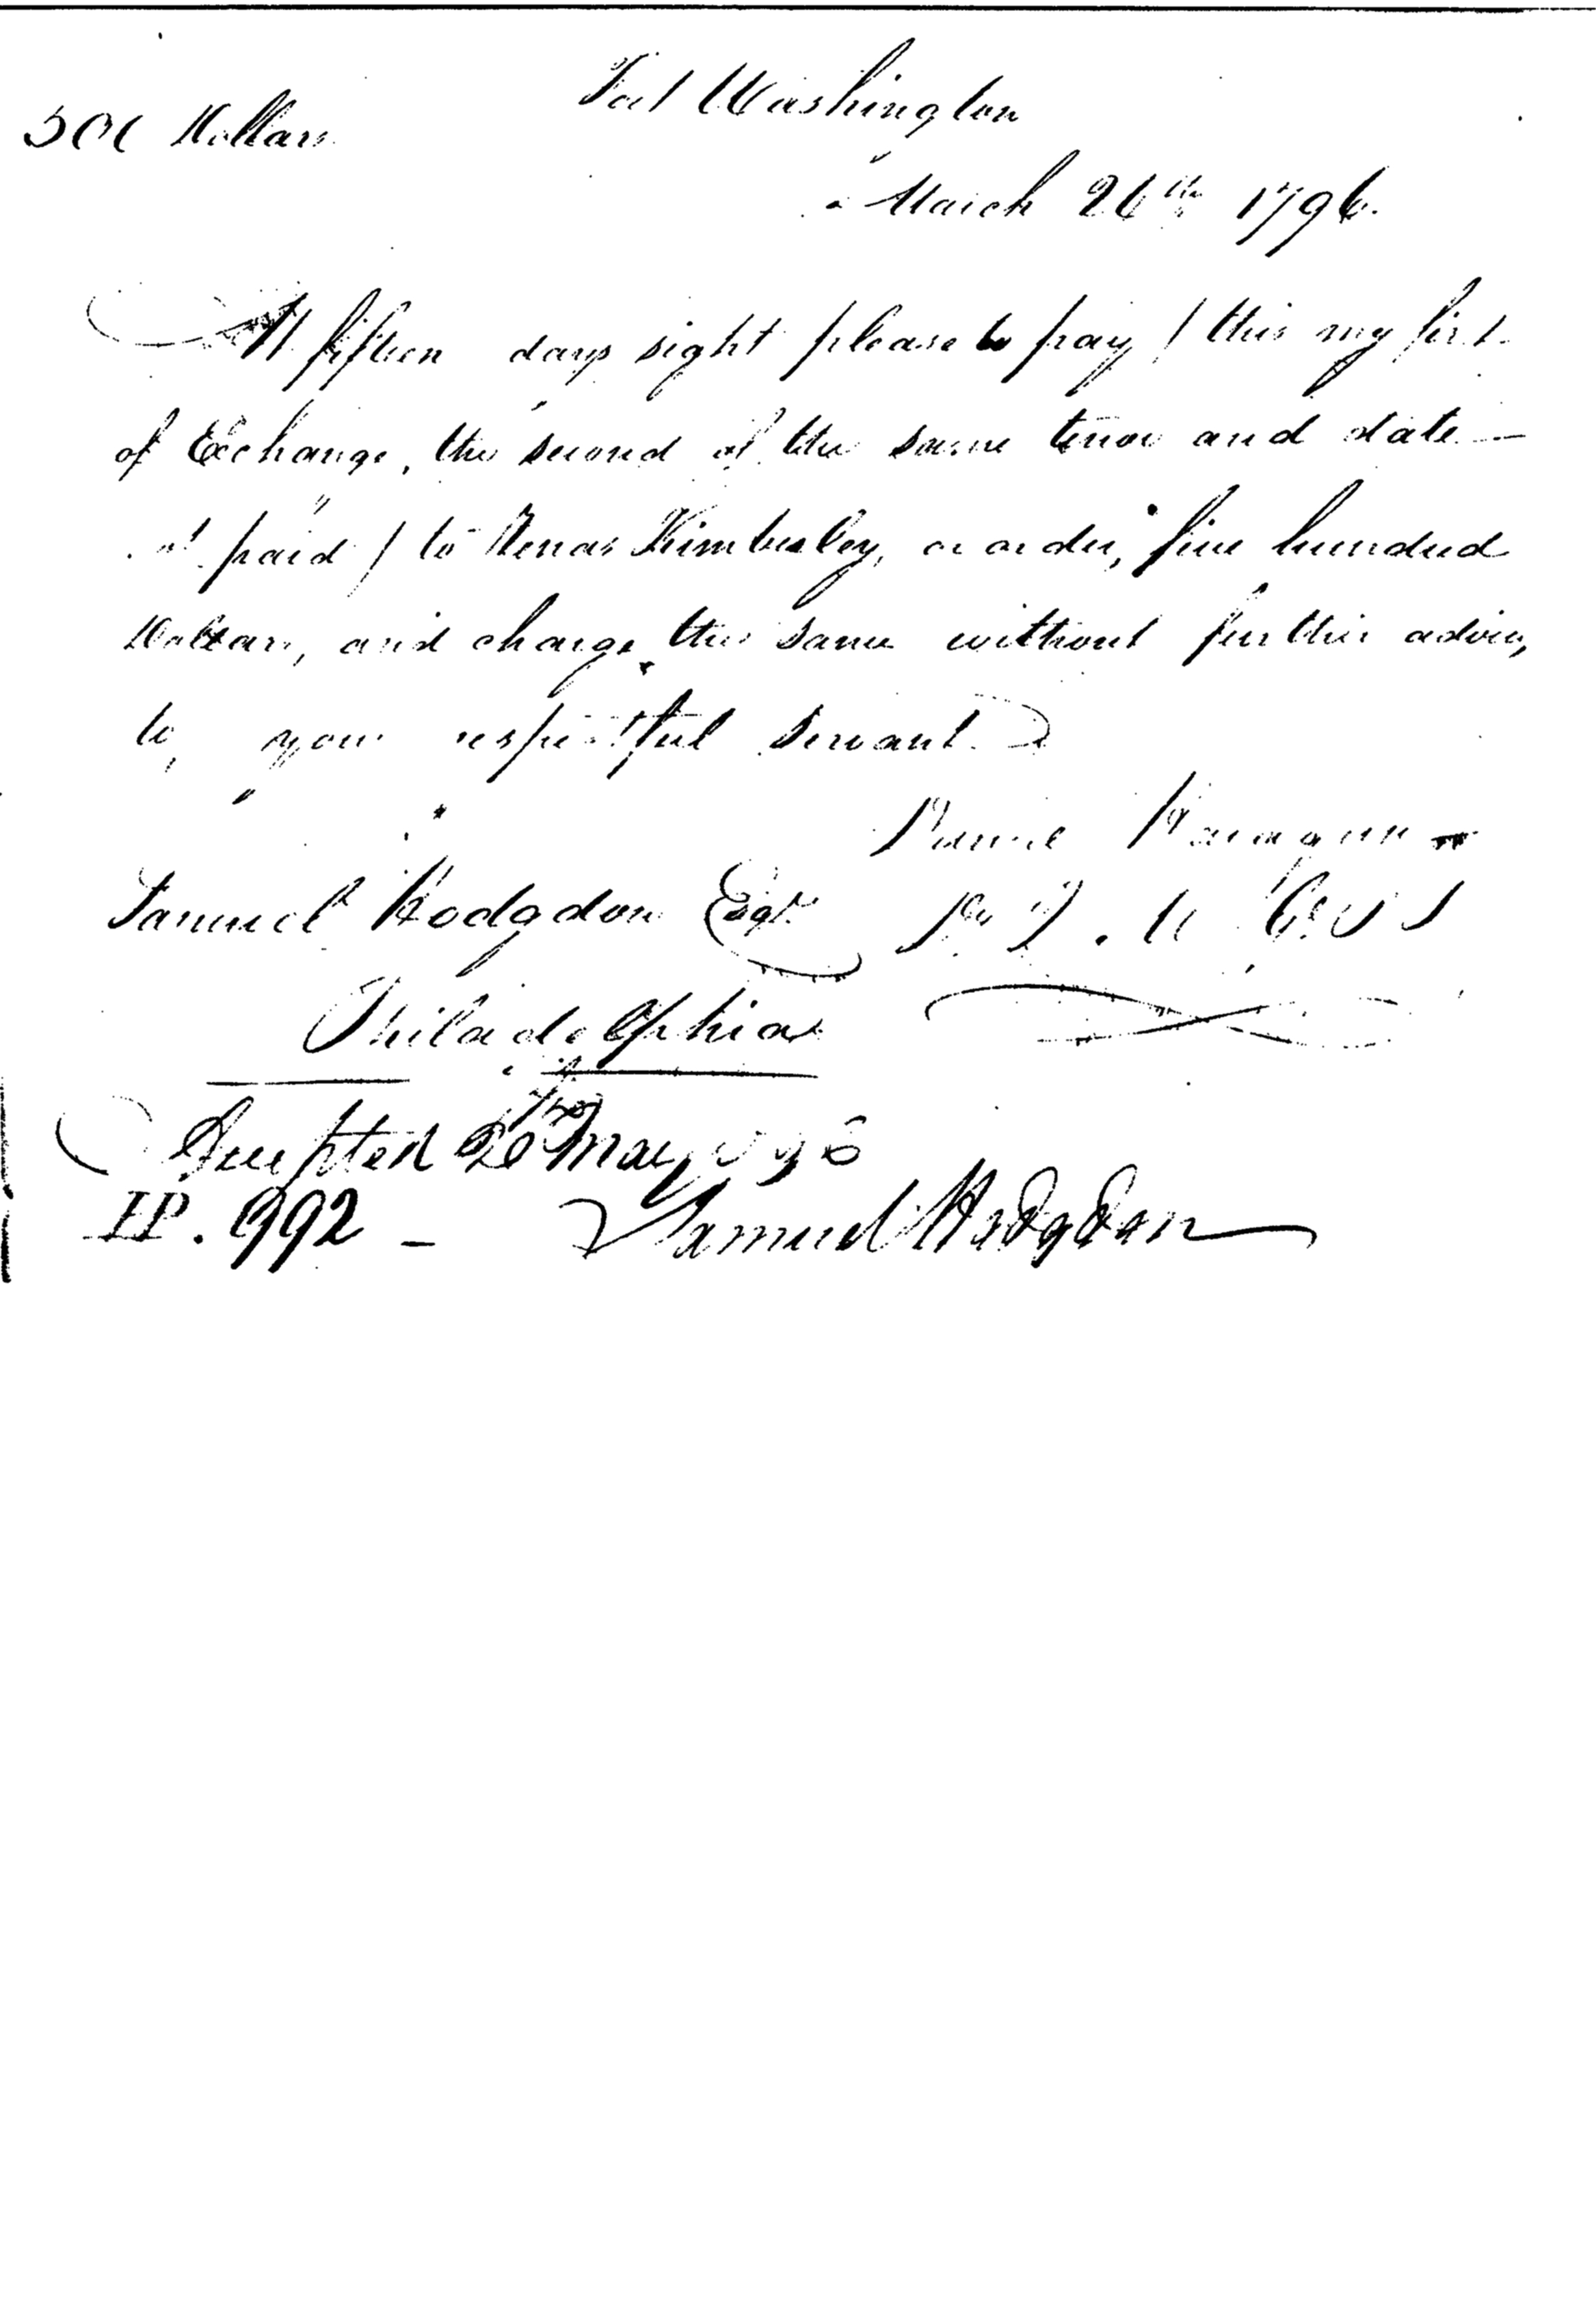 Fort Washington
500 Dollars
March 26th 1796.
At fifteen days sight please to pay / this my first
of Exchange, the second of the same tenor and date —
not paid / to Zenas Kimberley, or order, five hundred
Dollars, and charge the same without further advice,
to, your respectful servant
Samuel Hodgdon Esqr.
Philadelphia
Accepted 20th May 1796
IP. 992 –
Samuel Hodgdon